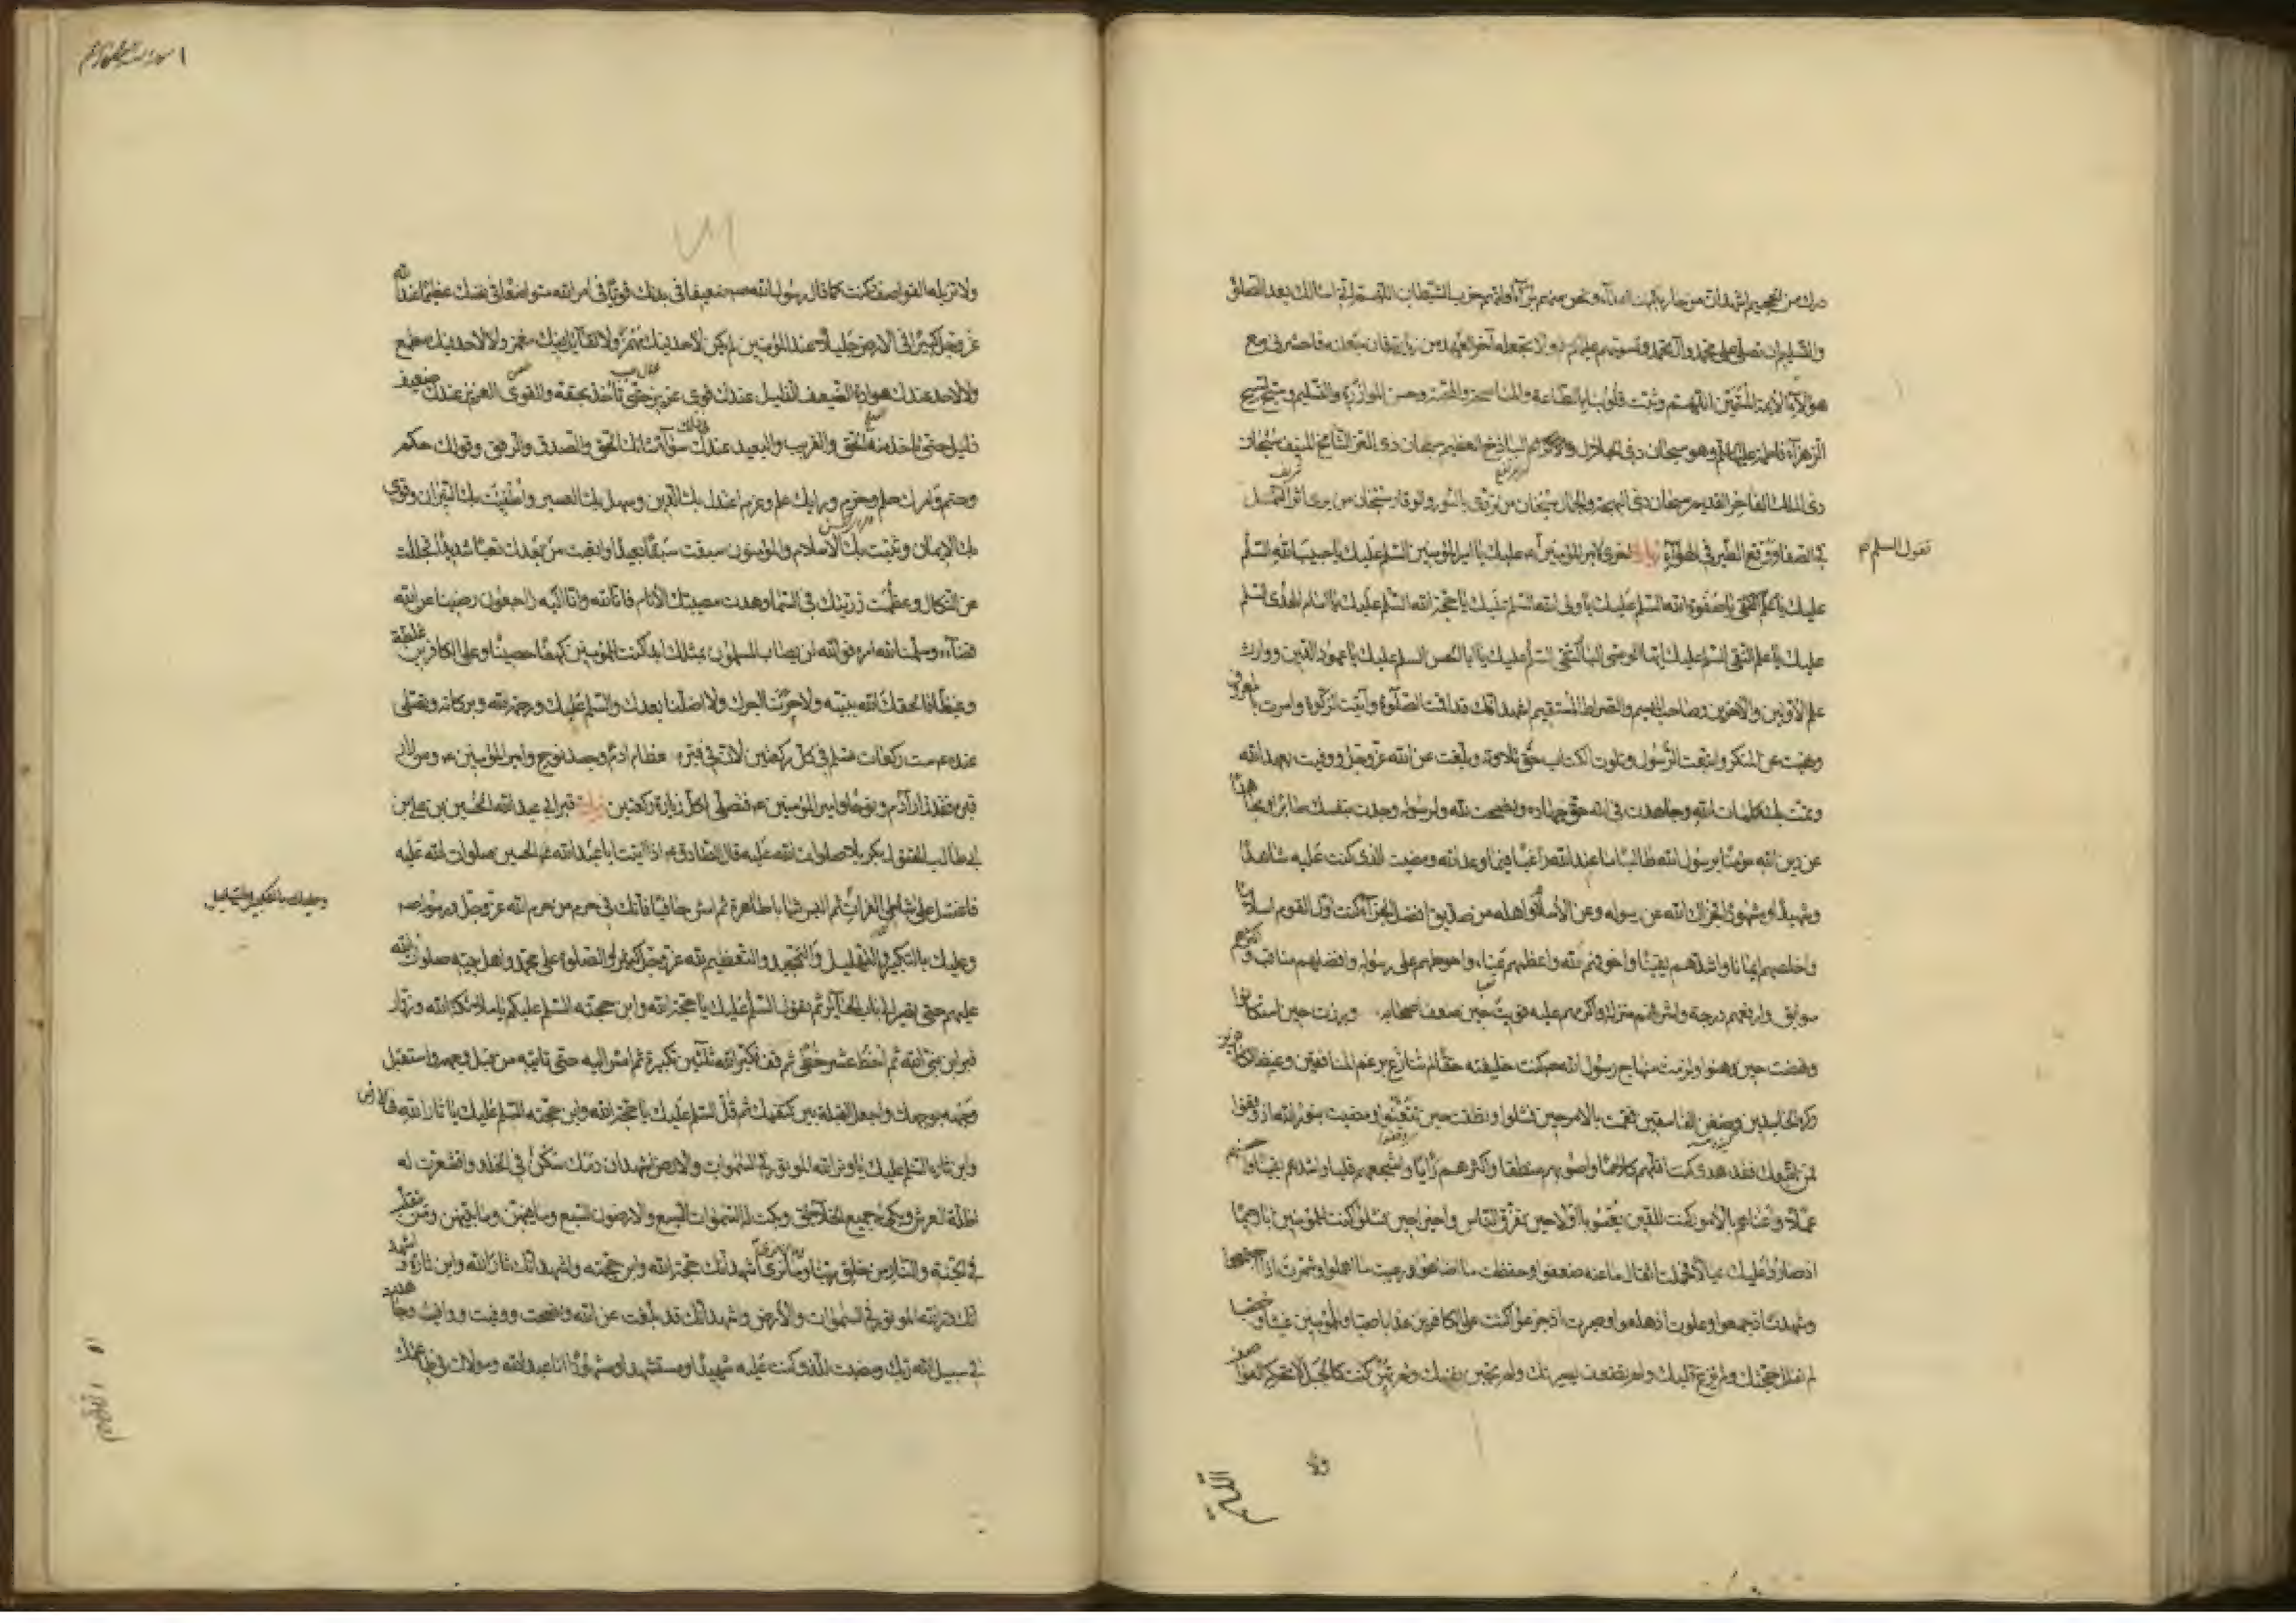 درك من الجحيم اشهد ان من حاربكم لنا اعداء ونحن منهم برآء وانهم حزب الشيطان اللهم اني اسالك بعد الصلوة
والتسليم ان تصلي على محمد وآل محمد وتسميهم عليهم السلام ولا تجعله آخر العهد من زيارته فان جعلته فاحشرني مع
هؤلاء الائمة المسمين اللهم وثبت قلوبنا بالطاعة والمناصحة والمحبة وحسن الموازرة والتسليم وسبح تسبيح
الزهراء فاطمة عليها السلام وهو سبحان ذي الجلال الباذخ العظيم سبحان ذي العز الشامخ المنيف سبحان
ذي الملك الفاخر القديم سبحان ذي البهجة والجمال سبحان من تردى بالنور والوقار سبحان من يرى اثر النمل
تقول السلام
في الصفا ووقع الطير في الهواء زيارة اخرى لامير المؤمنين عليك يا امير المؤمنين السلم عليك يا حبيب الله السلم
عليك يا صفوة الله السلم عليك يا ولي الله السلم عليك يا حجة الله السلم عليك يا امام الهدى السلم
عليك يا علم التقى السلم عليك ايها الوصي البار التقي السلم عليك يا ابا الحسن السلم عليك يا عمود الدين ووارث
علم الاولين والآخرين وصاحب الميسم والصراط المستقيم اشهد انك قد اقمت الصلوة وآتيت الزكوة وامرت بالمعروف
ونهيت عن المنكر واتبعت الرسول وتلوت الكتاب حق تلاوته وبلغت عن الله عز وجل ووفيت بعهد الله
وتمت بك كلمات الله وجاهدت في الله حق جهاده ونصحت لله ولرسوله وجدت بنفسك صابرا ومجاهدا
عن دين الله مؤمنا برسول الله طالبا ما عند الله راغبا فيما وعد الله ومضيت للذي كنت عليه شاهدا
وشهيدا ومشهودا فجزاك الله عن رسوله وعن الاسلام واهله من صديق افضل الجزاء كنت اول القوم اسلاما
واخلصهم ايمانا واشدهم يقينا واخوفهم لله واعظمهم عناء واحوطهم على رسوله وافضلهم مناقب واكثرهم
سوابق وارفعهم درجة واشرفهم منزلة واكرمهم عليه قويت حين ضعف اصحابه وبرزت حين استكانوا
ونهضت حين وهنوا ولزمت منهاج رسول الله كنت خليفته حقا لم تنازع برغم المنافقين وغيظ الكافرين
وكره الحاسدين وضغن الفاسقين فقمت بالامر حين فشلوا ونطقت حين تتعتعوا ومضيت بنور الله اذ وقفوا
فمن اتبعك فقد هدي كنت اقلهم كلاما واصوبهم منطقا واكثرهم رأيا واشجعهم قلبا واشدهم يقينا واحسنهم
عملا واعناهم بالامور كنت للدين يعسوبا اولا حين تفرق الناس واخرا حين فشلوا كنت للمؤمنين ابا رحيما
اذ صاروا عليك عيالا فحملت اثقال ما عنه ضعفوا وحفظت ما اضاعوا ورعيت ما اهملوا وشمرت اذ اجتمعوا
وشهدت اذ جمعوا وعلوت اذ هلعوا وصبرت اذ جزعوا كنت على الكافرين عذابا صبا وللمؤمنين غيثا وخصبا
لم تفلل حجتك ولم يزغ قلبك ولم تضعف بصيرتك ولم تجبن نفسك ولم تهن كنت كالجبل لا تحركه العواصف
ولا
ولا تزيله القواصف وكنت كما قال رسول الله ضعيفا في بدنك قويا في امر الله متواضعا في نفسك عظيما عند الله
عز وجل كبيرا في الارض جليلا عند المؤمنين لم يكن لاحد فيك مهمز ولا لقائل فيك مغمز ولا لاحد فيك مطمع
ولا لاحد عندك هوادة الضعيف الذليل عندك قوي عزيز حتى تأخذ بحقه والقوي العزيز عندك ضعيف
ذليل حتى تاخذ منه الحق والقريب والبعيد عندك سواء شانك الحق والصدق والرفق وقولك حكم
وحتم وامرك حلم وحزم ورايك علم وعزم اعتدل بك الدين وسهل بك العسير واطفيت بك النيران وقوي
بك الايمان وثبت بك الاسلام والمؤمنون سبقت سبقا بعيدا واتعبت من بعدك تعبا شديدا فجللت
عن النكال وعظمت رزيتك في السماء وهدت مصيبتك الانام فانا لله وانا اليه راجعون رضينا عن الله
قضاءه وسلمنا لله امره فوالله لن يصاب المسلمون بمثلك ابدا كنت للمؤمنين كهفا حصينا وعلى الكافرين غلظة
وغيظا فالحقك الله بنبيه ولا حرمنا اجرك ولا اضلنا بعدك والسلم عليك ورحمة الله وبركاته وتصلي
عنده ست ركعات تسلم في كل ركعتين لان في قبره عظام ادم وجسد نوح وامير المؤمنين ومن زار
قبره فقد زار آدم ونوحا وامير المؤمنين فتصلي لكل زيارة ركعتين زيارة قبر ابي عبد الله الحسين بن علي بن
ابي طالب المقتول بكربلا صلوات الله عليه قال الصادق اذا اتيت ابا عبد الله الحسين صلوات الله عليه
فاغتسل على شاطي الفرات ثم البس ثيابا طاهرة ثم امش حافيا فانك في حرم من حرم الله عز وجل ورسوله
وعليك بالتكبير والتهليل
وعليك بالتكبير والتهليل والتمجيد والتعظيم لله عز وجل كثيرا والصلوة على محمد واهل بيته صلوات الله
عليهم حتى تصير الى باب الحائر ثم تقول السلم عليك يا حجة الله وابن حجته السلم عليكم يا ملائكة الله وزوار
قبر ابن نبي الله ثم اخط عشر خطى ثم قف فكبر الله ثلثين تكبيرة ثم امش اليه حتى تاتيه من قبل وجهه واستقبل
وجهه بوجهك واجعل القبلة بين كتفيك ثم قل السلم عليك يا حجة الله وابن حجته السلم عليك يا ثار الله في الارض
وابن ثاره السلم عليك يا وتر الله الموتور في السموات والارض اشهد ان دمك سكن في الخلد واقشعرت له
اظلة العرش وبكى له جميع الخلائق وبكت له السموات السبع والارضون السبع وما فيهن وما بينهن ومن يتقلب
في الجنة والنار من خلق ربنا وما يرى وما لا يرى اشهد انك حجة الله وابن حجته واشهد انك ثار الله وابن ثاره واشهد
انك وتر الله الموتور في السموات والارض واشهد انك قد بلغت عن الله ونصحت ووفيت ووافيت وجاهدت
في سبيل الله ربك ومضيت للذي كنت عليه شهيدا ومستشهدا ومشهودا انا عبد الله ومولاك وفي طاعتك